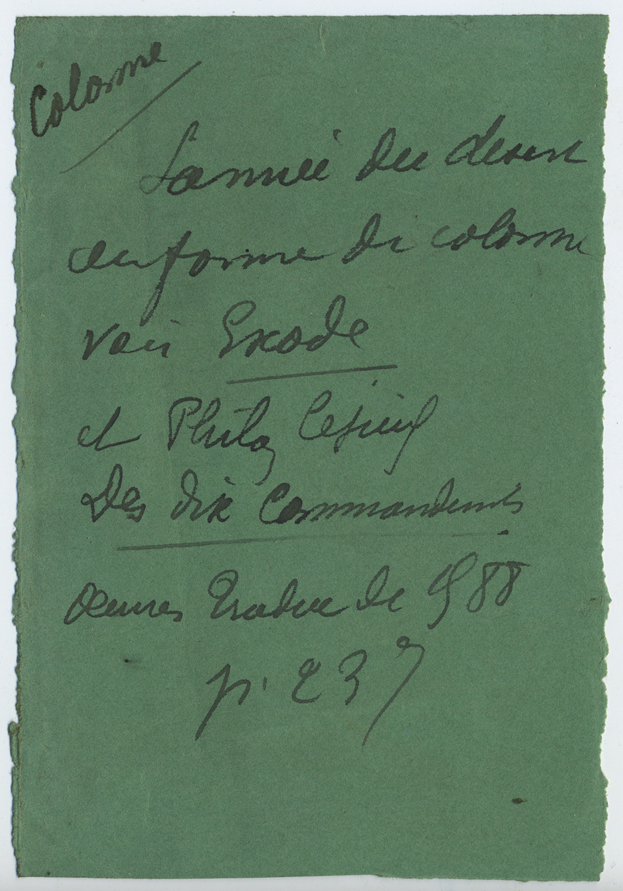 Colonne
L'année du desert
en forme de colonne
voir Exode
et Philon le Juif
Des dix Commandements
œuvres traduc de 1588
p. 237